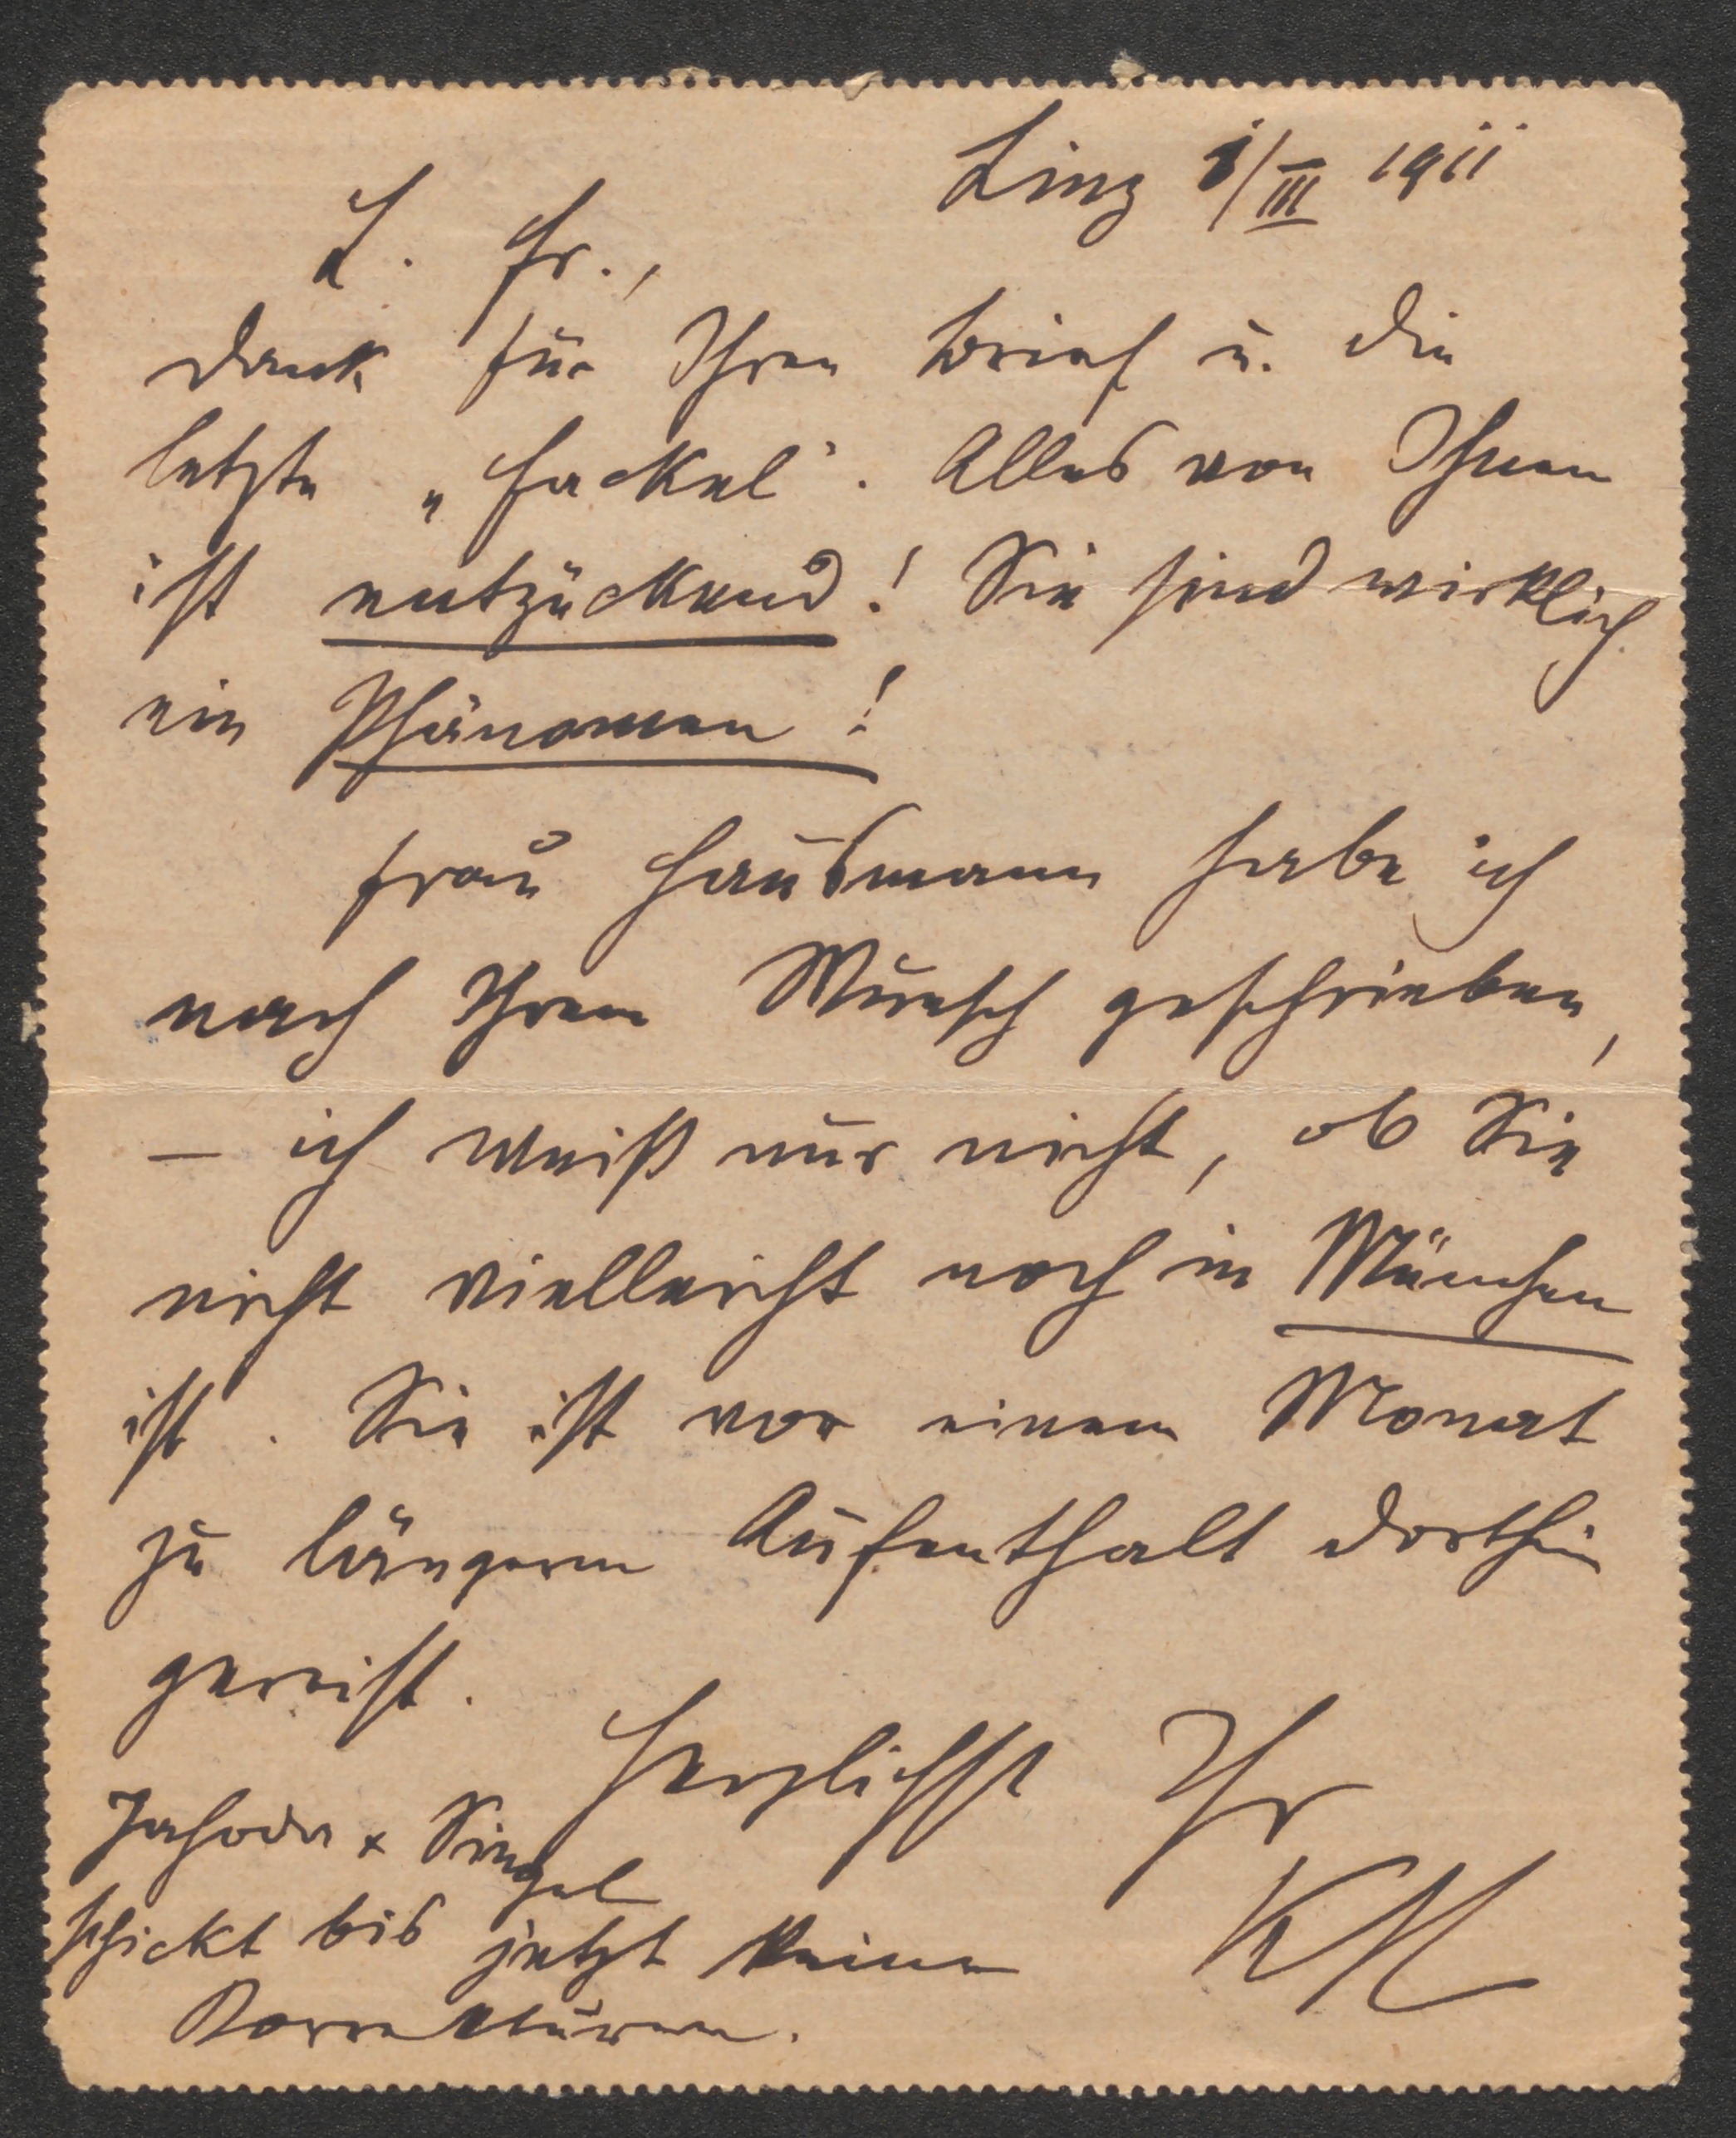 Linz 1/III 1911
L. Fr.,
Dank für Ihren Brief u. die
letzte „Fackel". Alles von Ihnen
ist entzückend! Sie sind wirklich
ein Phänomen!
Frau Hausmann habe ich
nach Ihrem Wunsch geschrieben,
– ich weiß nur nicht, ob Sie
nicht vielleicht noch in München
ist. Sie ist vor einem Monat
zu längerm Aufenthalt dorthin
gereist.
Herzlichst Ihr
KM
Jahoda & Siegel
schickt bis jetzt keine
Korrekturen.